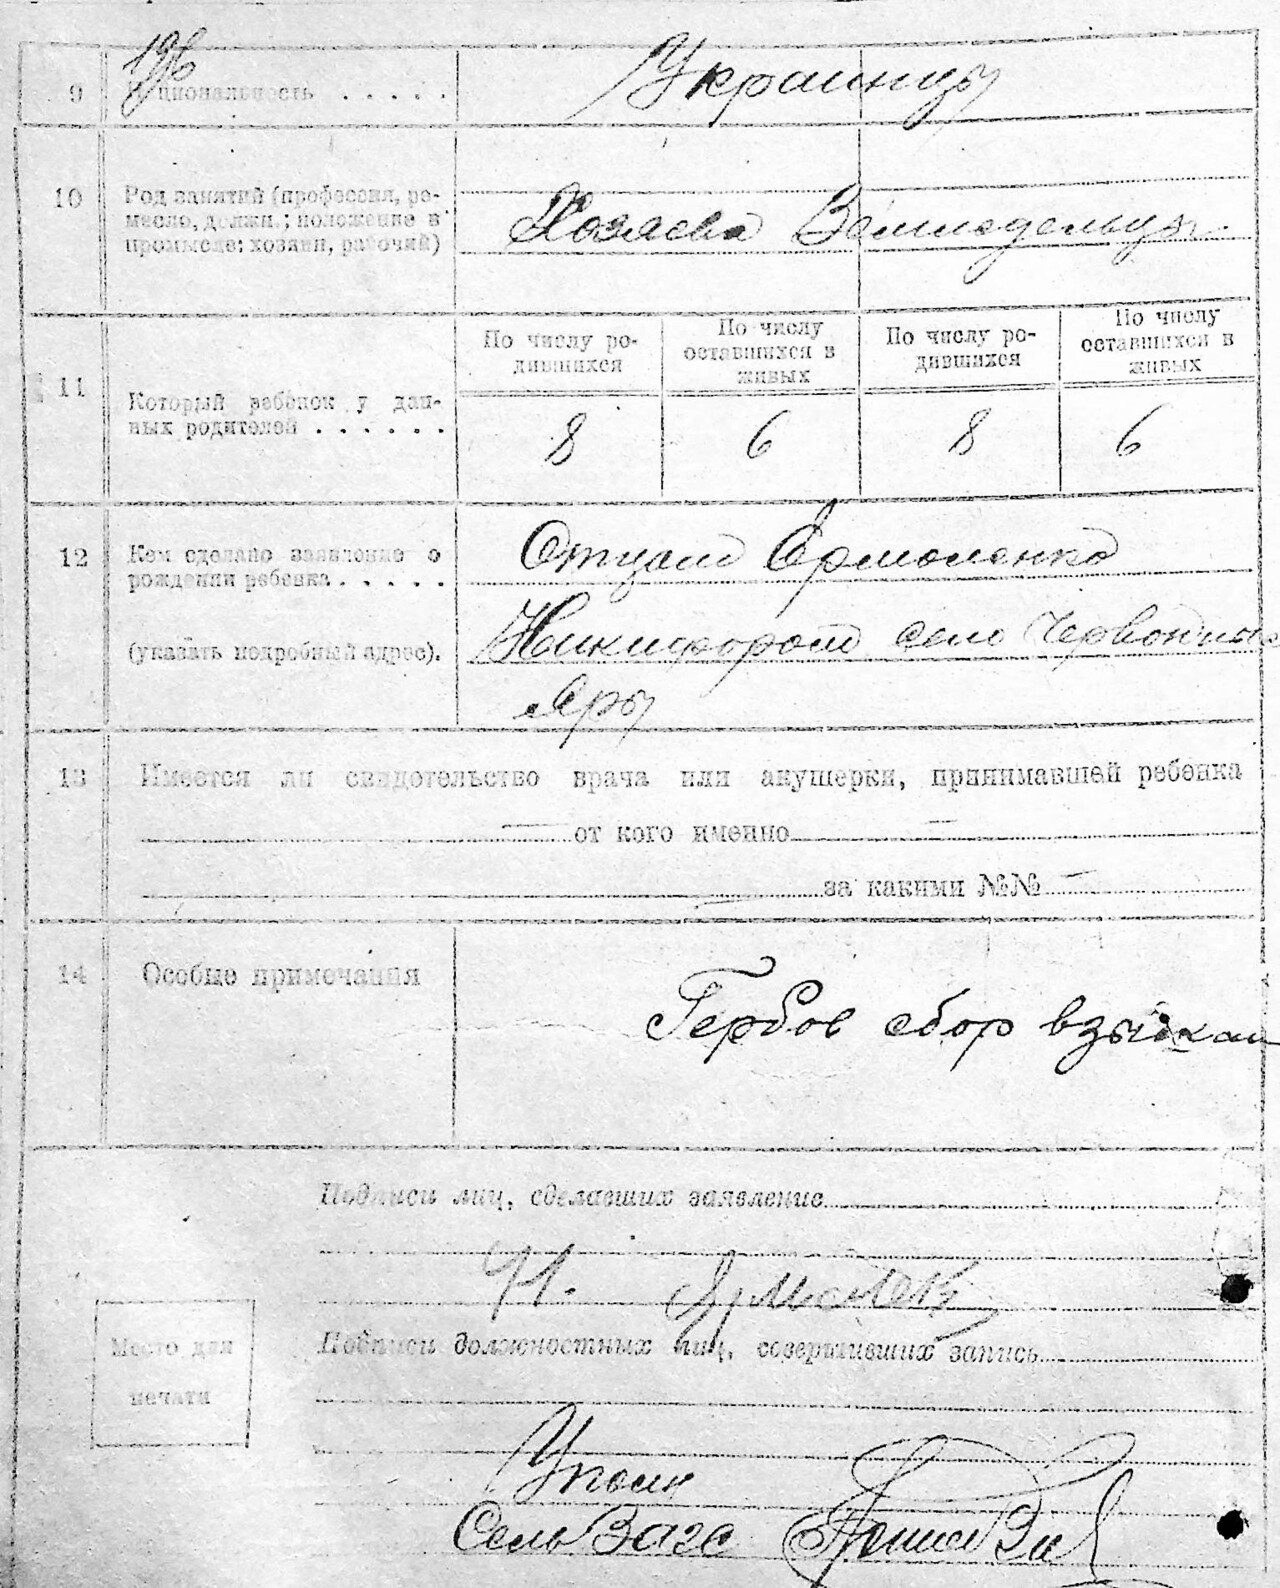 196
9 Национальность . . . . . Украинцы
10 Род занятий (профессия, ре-
месло, должн.; положение в
промысле: хозяин, рабочий)
Хозяева Земледельцы
По числу ро-
дившихся
По числу
оставшихся в
живых
По числу ро-
дившихся
По числу
оставшихся в
живых
11 Который ребенок у дан-
ных родителей . . . . . .
8 6 8 6
12 Кем сделано заявление о
рождении ребенка . . . . .
(указать подробный адрес).
Отцом Ермоленко
Никифором село Червонные
Яры
13 Имеется ли свидетельство врача или акушерки, принимавшей ребенка
— от кого именно —
— за какими №№ —
14 Особые примечания
Гербов сбор взыскан
Подписи лиц, сделавших заявление
Н. Ярмоленк
Подписи должностных лиц, совершивших запись
Место для
печати
Сель Загс